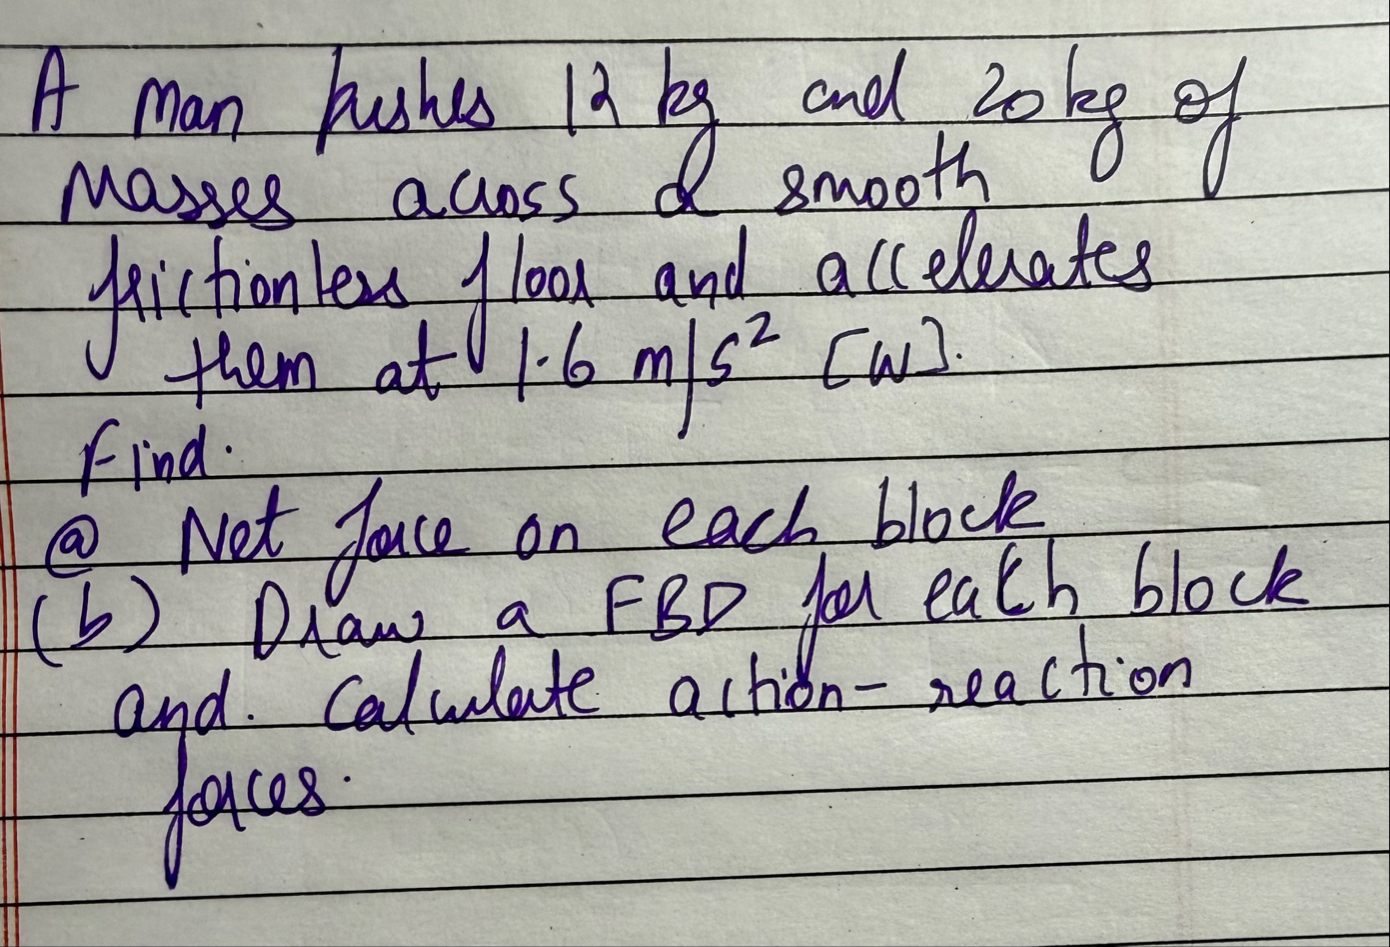 A man pushes 12 kg and 20 kg of
masses across a smooth
frictionless floor and accelerates
them at 1.6 m/s² [W].
Find.
(a) Net force on each block
(b) Draw a FBD for each block
and. Calculate action-reaction
forces.